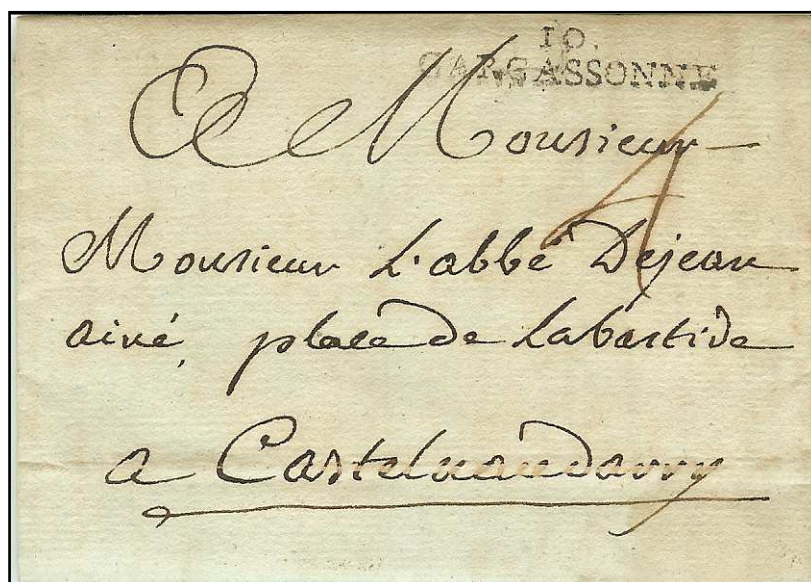 10.
CARCASSONNE
A Monsieur
4
Monsieur L'abbé Dejean
ainé, place de Labastide
a Castelnaudarry